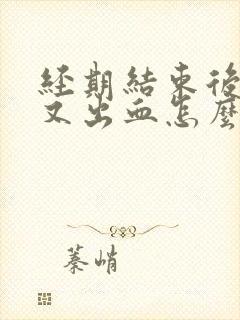 經期結束後
又出血怎麼
蓁峭